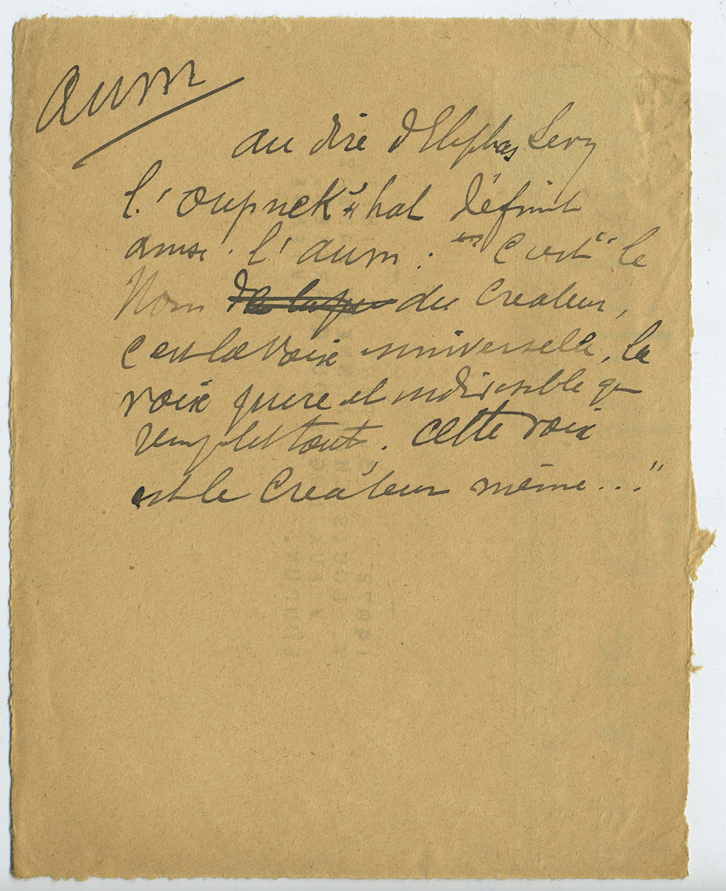 Aum
au dire d'Eliphas Levy
l'oupnek'hat définit
ainsi l'aum : "C'est le
Nom du Createur,
c'est la voix universelle, la
voix pure et indivisible qui
remplit tout. cette voix
est le Créateur même..."